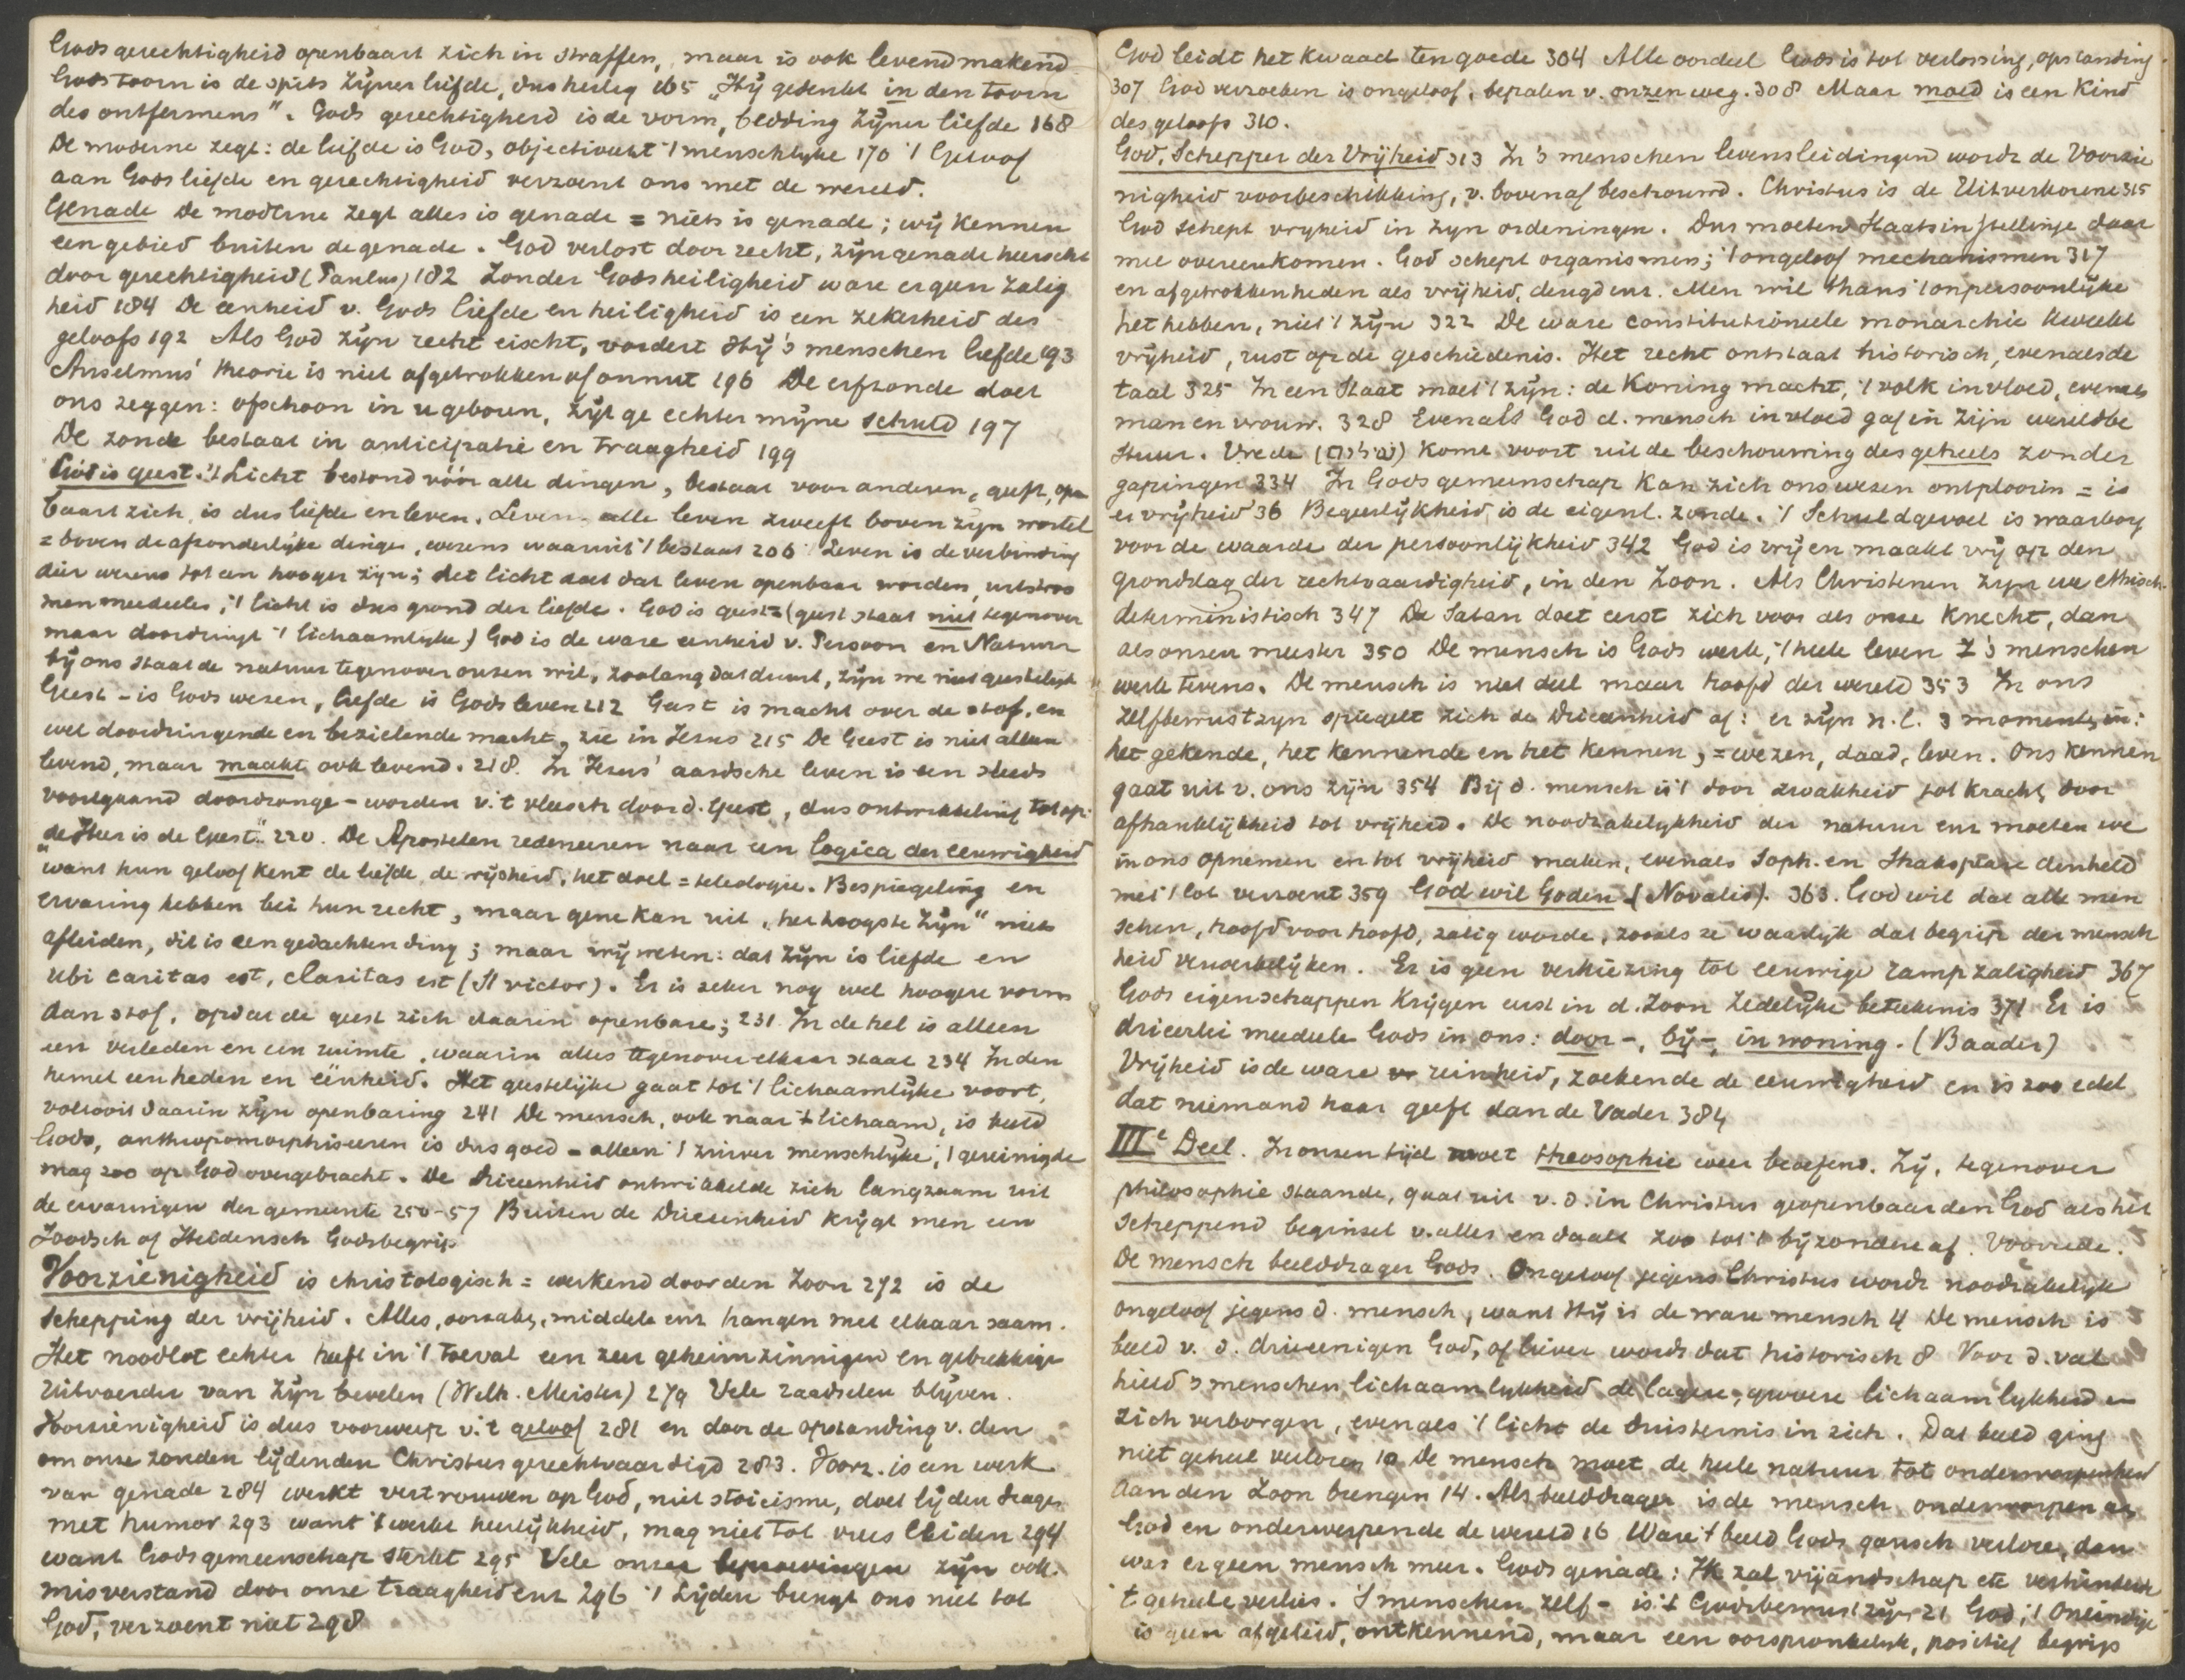 Gods gerechtigheid openbaart zich in straffen, maar is ook levendmakend
Gods toorn is de spits zijner liefde, dus heilig 165 „Hij gedenkt in den toorn
des ontfermens". Gods gerechtigheid is de vorm, bedding zijner liefde 168
De moderne zegt: de liefde is God, objectiveert 't menschlijke 170 't Geloof
aan Gods liefde en gerechtigheid verzoent ons met de wereld.
Genade De moderne zegt alles is genade = niets is genade; wij kennen
een gebied buiten de genade. God verlost door recht, zijn genade heerscht
door gerechtigheid (Paulus) 182 Zonder Gods heiligheid ware er geen zalig
heid 184 De eenheid v. Gods liefde en heiligheid is een zekerheid des
geloofs 192 Als God zijn recht eischt, vordert Hij 's menschen liefde 193
Anselmus' theorie is niet afgetrokken of onnut 196 De erfzonde doet
ons zeggen: ofschoon in u geboren, zijt ge echter mijne schuld 197
De zonde bestaat in anticipatie en traagheid 199
God is geest. 't Licht bestond vóór alle dingen, bestaat voor anderen, geeft, open
baart zich, is dus liefde en leven. Leven. alle leven zweeft boven zijn wortel
= boven de afzonderlijke dingen, wezens waaruit 't bestaat 206 Leven is de verbinding
dier wezens tot een hooger zijn; het licht doet dat leven openbaar worden, uitstroo
men mededeelen; 't licht is dus grond der liefde. God is geest = (geest staat niet tegenover
maar doordringt 't lichaamlijke) God is de ware eenheid v. Persoon en Natuur
bij ons staat de natuur tegenover onzen wil, zoolang dat duurt, zijn we niet geestelijk
Geest - is Gods wezen, liefde is Gods leven 212 Geest is macht over de stof, en
wel doordringende en bezielende macht, zie in Jezus 215 De Geest is niet alleen
levend, maar maakt ook levend. 218. In Jezus' aardsche leven is een steeds
voortgaand doordrongen-worden v. 't vleesch door d. Geest, dus ontwikkeling tot op:
„de Heer is de Geest." 220. De Apostelen redeneeren naar een logica der eeuwigheid
want hun geloof kent de liefde, de wijsheid, het doel = teleologie. Bespiegeling en
ervaring hebben bei hun recht, maar gene kan uit „het hoogste Zijn" niets
afleiden, dit is een gedachtending; maar wij weten: dat Zijn is liefde en
ubi caritas est, claritas est (St Victor). Er is zeker nog wel hoogere vorm
aan stof, opdat de geest zich daarin openbare; 231 In de hel is alleen
een verleden en een ruimte, waarin alles tegenover elkaar staat 234 In den
hemel eenheden en eenheid. Het geestelijke gaat tot 't lichaamlijke voort,
voltooit daarin zijn openbaring 241 De mensch, ook naar 't lichaam, is beeld
Gods, anthropomorphiseeren is dus goed - alleen 't zuiver menschlijke, 't gereinigde
mag zoo op God overgebracht. De Drieenheid ontwikkelde zich langzaam uit
de ervaringen der gemeente 250-57 Buiten de Drieeenheid krijgt men een
Joodsch of Heidensch Godsbegrip
Voorzienigheid is christologisch = werkend door den Zoon 272 is de
schepping der vrijheid. Alles, oorzaken, middelen enz hangen met elkaar saam.
Het noodlot echter heeft in 't toeval een zeer geheimzinnigen en gebrekkige
uitvoerder van zijn bevelen (Welh. Meister) 279 Vele raadselen blijven.
Voorzienigheid is dus voorwerp v. 't geloof 281 en door de opstanding v. den
om onze zonden lijdenden Christus gerechtvaardigd 283. Voorz. is een werk
van genade 284 werkt vertrouwen op God, niet stoicisme, doet lijden dragen
met humor 293 want 't werkt heerlijkheid, mag niet tot vrees leiden 294
want Gods gemeenschap sterkt 295 Vele onzer beproevingen zijn ook
misverstand door onze traagheid enz 296 't Lijden brengt ons niet tot
God, verzoent niet 298
God leidt het kwaad ten goede 304 Alle oordeel Gods is tot verlossing, opstanding
307 God verzoeken is ongeloof, bepalen v. onzen weg. 308 Maar moed is een kind
des geloofs 310.
God, Schepper der Vrijheid 313 In 's menschen levensleidingen wordt de Voorzie
nigheid voorbeschikking, v. bovenaf beschouwd. Christus is de Uitverkorene 315
God schept vrijheid in zijn ordeningen. Dus moeten Staatsinstellinge daar
mee overeenkomen. God schept organismen; 't ongeloof mechanismen 317
en afgetrokkenheden als vrijheid, deugd enz. Men wil thans 't onpersoonlijke
het hebben, niet 't zijn 322 De ware constitutioneele monarchie kweekt
vrijheid, rust op de geschiedenis. Het recht ontstaat historisch, evenals de
taal 325 In een Staat moet 't zijn: de Koning macht, 't volk invloed, evenals
man en vrouw. 328 Evenals God d. mensch invloed gaf in zijn wereldbe
stuur. Vrede (שלום) kome voort uit de beschouwing des geheels zonder
gapingen 334 In Gods gemeenschap kan zich ons wezen ontplooien = is
er vrijheid 36 Begeerlijkheid is de eigenl. zonde. 't Schuldgevoel is waarborg
voor de waarde der persoonlijkheid 342 God is vrij en maakt vrij op den
grondslag der rechtvaardigheid, in den Zoon. Als Christenen zijn we ethisch-
deterministisch 347 De Satan doet eerst zich voor als onze knecht, dan
als onzen meester 350 De mensch is Gods werk, 't heele leven 's menschen
werk tevens. De mensch is niet deel maar hoofd der wereld 353 In ons
zelfbewustzijn spiegelt zich de Drieeenheid af: er zijn n.l. 3 momenten in:
het gekende, het kennende en het kennen, = wezen, daad, leven. Ons kennen
gaat uit v. ons zijn 354 Bij d. mensch is 't door zwakheid tot kracht, door
afhanklijkheid tot vrijheid. De noodzakelijkheid der natuur enz moeten we
in ons opnemen en tot vrijheid maken, evenals Soph. en Shakspeare den held
met 't lot verzoent 359 God wil Goden (Novalis). 363. God wil dat alle men
schen, hoofd voor hoofd, zalig worde, zooals ze waarlijk dat begrip der mensch
heid verwerkelijken. Er is geen verkiezing tot eeuwige rampzaligheid 367
Gods eigenschappen krijgen eerst in d. Zoon zedelijke beteekenis 371 Er is
drieerlei mededeele Gods in ons: door-, bij-, inwoning. (Baader)
Vrijheid is de ware reinheid, zoekende de eeuwigheid en is zoo edel
dat niemand haar geeft dan de Vader 384
IIIe Deel. In onzen tijd moet theosophie weer beoefend. Zij, tegenover
philosophie staande, gaat uit v. d. in Christus geopenbaarden God als het
scheppend beginsel v. alles en daalt zoo tot 't bijzondere af. Voorrede.
De mensch beelddrager Gods. Ongeloof jegens Christus wordt noodzakelijk
ongeloof jegens d. mensch, want Hij is de ware mensch 4 De mensch is
beeld v. d. drieeenigen God, of liever wordt dat historisch 8 Voor d. val
hield 's menschen lichaamlijkheid de lagere, grovere lichaamlijkheid in
zich verborgen, evenals 't licht de duisternis in zich. Dat beeld ging
niet geheel verloren 10 De mensch moet de heele natuur tot onderworpenheid
aan den Zoon brengen 14. Als beelddrager is de mensch onderworpen aan
God en onderwerpende de wereld 16 Ware 't beeld Gods gansch verloren, dan
was er geen mensch meer. Gods genade: Ik zal vijandschap etc verhinderde
't geheele verlies. 's menschen zelf- is 't Godsbewustzijn 21 God, 't Oneindige
is geen afgeleid, ontkennend, maar een oorspronkelijk, positief begrip